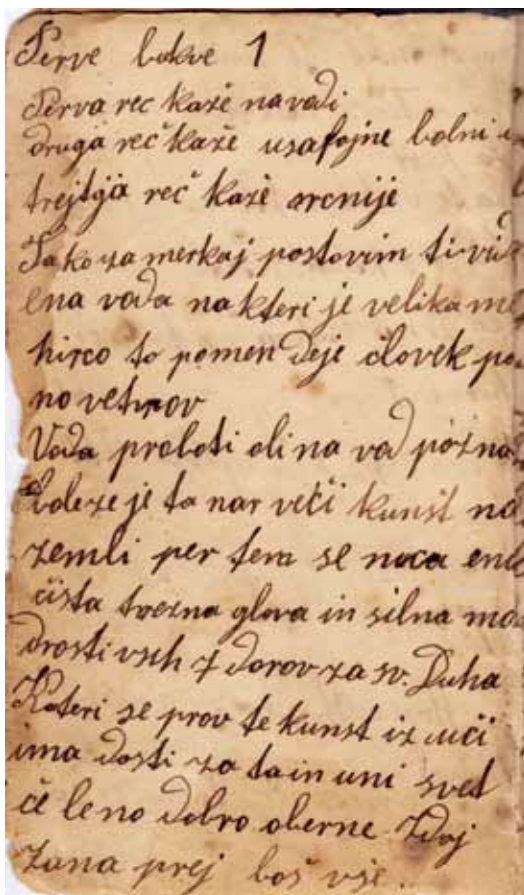 Perve bukve 1
Perva reč kaže na vodi
druga reč kaže usafojne bolni
trejtja reč kaže srcnije
Tako za merkaj postovim ti vid
ena voda na kteri je velika me
hirco to pomen deje človek po
no vetrov
Voda proloti oli na vod pozna
boleze je ta nar veči kunšt na
zemli per tem se nuca ena
čista trezna glova in silna mo
drosti vseh 7 dorov za sv. Duha
Kateri se prov te kunst iz uči
ima dosti za ta in uni svet
če le no dobro oberne Zdoj
zana prej boš vse..